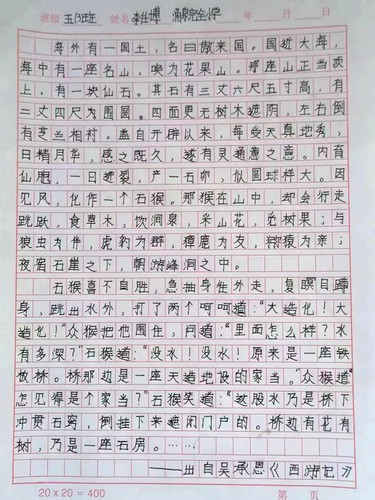 班级 五(2)班 姓名 李仕博 涌泉完全小学 年 月 日
海外有一国土,名曰傲来国。国近大海,
海中有一座名山,唤为花果山。那座山正当顶
上,有一块仙石。其石有三丈六尺五寸高,有
二丈四尺为围圆。四面更无树木遮阴,左右倒
有芝兰相衬。盖自开辟以来,每受天真地秀,
日精月华,感之既久,遂有灵通意之意。内育
仙胞,一日迸裂,产一石卵,似圆球样大。因
见风,化作一个石猴。那猴在山中,却会行走
跳跃,食草木,饮涧泉,采山花,觅树果;与
狼虫为伴,虎豹为群,獐鹿为友,猕猿为亲;
夜宿石崖之下,朝游峰洞之中。
石猴喜不自胜,急抽身往外走,复瞑目蹲
身,跳出水外,打了两个呵呵道:“大造化!大
造化!”众猴把他围住,问道:“里面怎么样?水
有多深?”石猴道:“没水!没水!原来是一座铁
板桥。桥那边是一座天造地设的家当。”众猴道“
怎见得是个家当?”石猴笑道:“这股水乃是桥下
冲贯石窍,倒挂下来遮闭门户的。桥边有花有
树,乃是一座石房。……
——出自吴承恩《西游记》
20×20=400 第 页